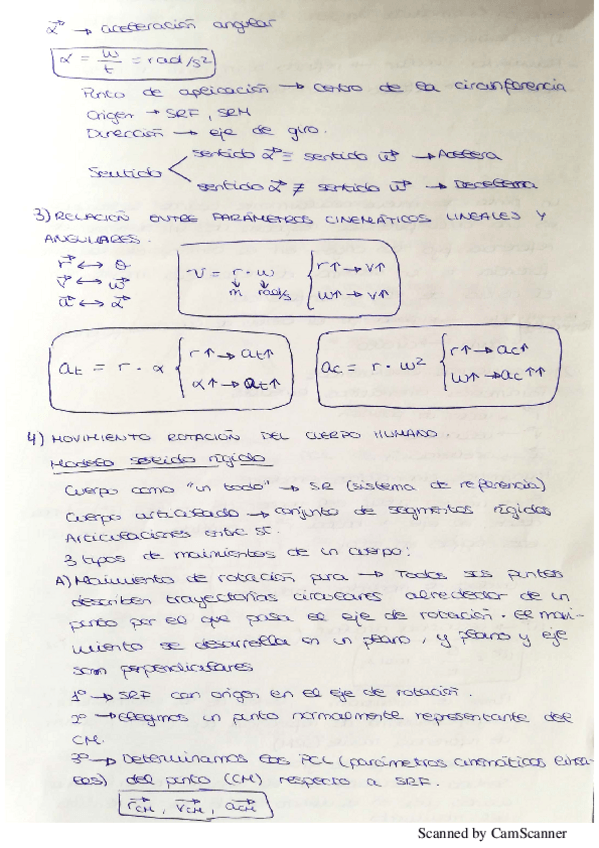 α⃗ → aceleración angular
α = w/t = rad/s²
Punto de aplicación → centro de la circunferencia
Origen → SRF, SRM
Dirección → eje de giro.
Sentido
sentido α⃗ ≡ sentido w⃗ → Acelera
sentido α⃗ ≢ sentido w⃗ → Decelera
3) RELACIÓN ENTRE PARÁMETROS CINEMÁTICOS LINEALES Y
ANGULARES.
r⃗ ↔ θ
v⃗ ↔ w⃗
a⃗ ↔ α⃗
v = r · w { r↑ → v↑
m rad/s
w↑ → v↑
at = r · α { r↑ → at↑
α↑ → at↑
ac = r · w² { r↑ → ac↑
w↑ → ac↑↑
4) MOVIMIENTO ROTACIÓN DEL CUERPO HUMANO.
Modelo sólido rígido
Cuerpo como "un todo" → SR (sistema de referencia)
Cuerpo articulado → conjunto de segmentos rígidos
Articulaciones entre sí.
3 tipos de movimientos de un cuerpo:
A) Movimiento de rotación pura → Todos sus puntos
describen trayectorias circulares alrededor de un
punto por el que pasa el eje de rotación. El movi-
miento se desarrolla en un plano, y plano y eje
son perpendiculares
1º → SRF con origen en el eje de rotación.
2º → Elegimos un punto normalmente representante del
CM.
3º → Determinamos los PCL (parámetros cinemáticos linea-
les) del punto (CM) respecto a SRF.
r⃗CM, v⃗CM, a⃗CM
Scanned by CamScanner